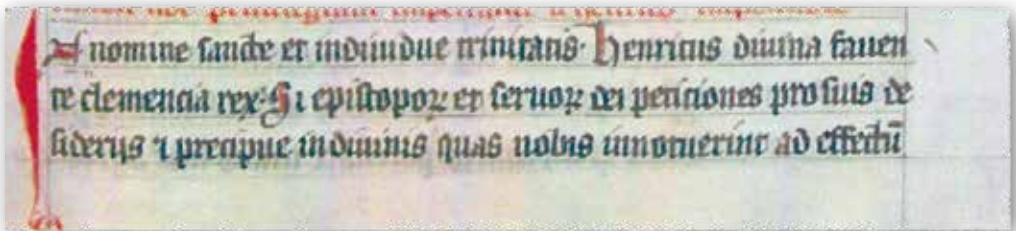 In nomine sancte et indiuidue trinitatis. Henricus diuina fauen
te clemencia rex. Si episcoporꝝ et seruorꝝ dei peticiones pro suis de
siderijs ⁊ precipue in diuinis quas nobis innotuerint ad effectū